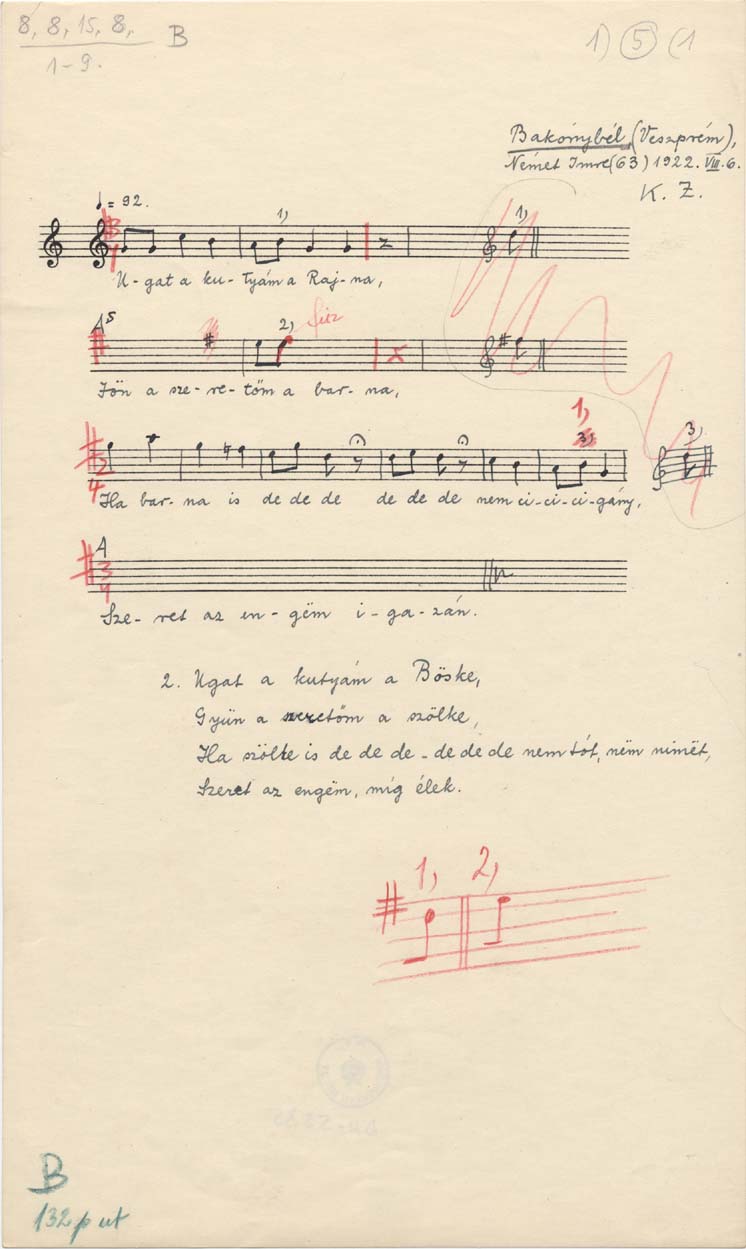 8, 8, 15, 8,
B
1-9.
1) 5 (1
Bakónybél (Veszprém),
Német Imre (63) 1922. VIII. 6.
K. Z.
= 92.
1) 1)
U-gat a ku-tyám a Raj-na,
A5 2)
Jön a sze-re-töm a bar-na,
1)
3) 3)
2
4
Ha bar-na is de de de de de de nem ci-ci-ci-gány,
A
3
4
Sze-ret az en-gëm i-ga-zán.
2. Ugat a kutyám a Böske,
Gyün a szeretöm a szölke,
Ha szölke is de de de-de de de nem tót, nëm nimët,
Szeret az engëm, míg élek.
1) 2)
B
132 p ut